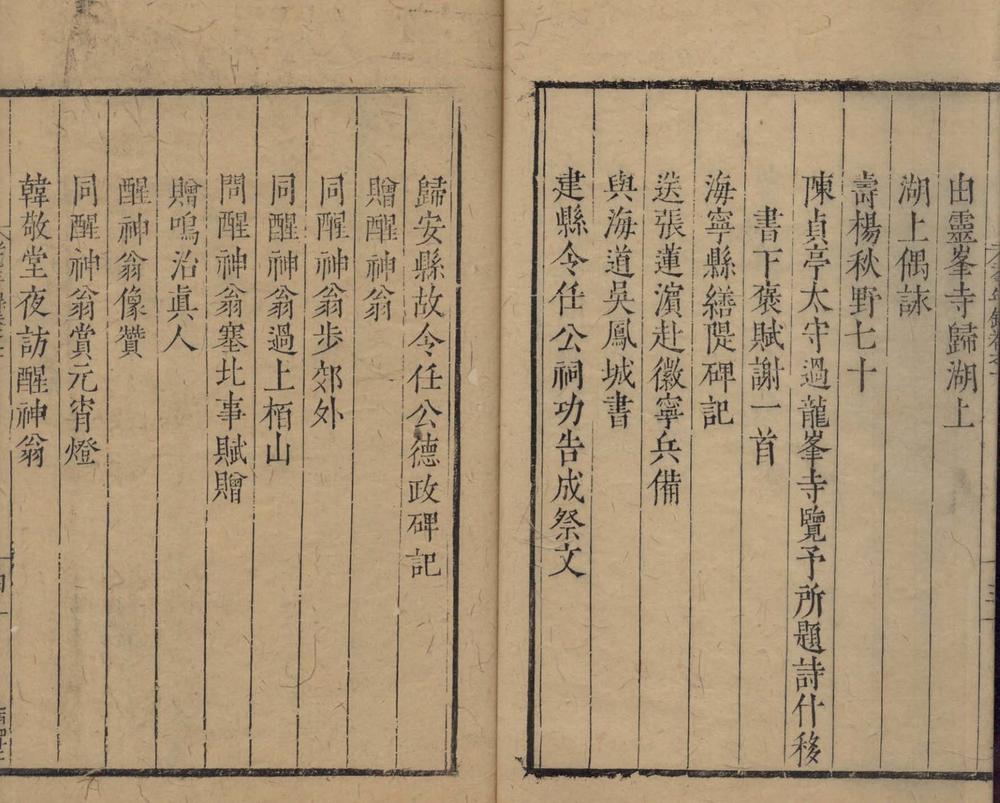 由靈峯寺歸湖上
湖上偶詠
壽楊秋野七十
陳貞亭太守過龍峯寺覽予所題詩什移
書下褒賦謝一首
海寧縣繕隄碑記
送張蓮濱赴徽寧兵備
與海道吳鳳城書
建縣令任公祠功告成祭文
歸安縣故令任公德政碑記
贈醒神翁
同醒神翁步郊外
同醒神翁過上栢山
問醒神翁塞北事賦贈
贈鳴治眞人
醒神翁像贊
同醒神翁賞元宵燈
韓敬堂夜訪醒神翁